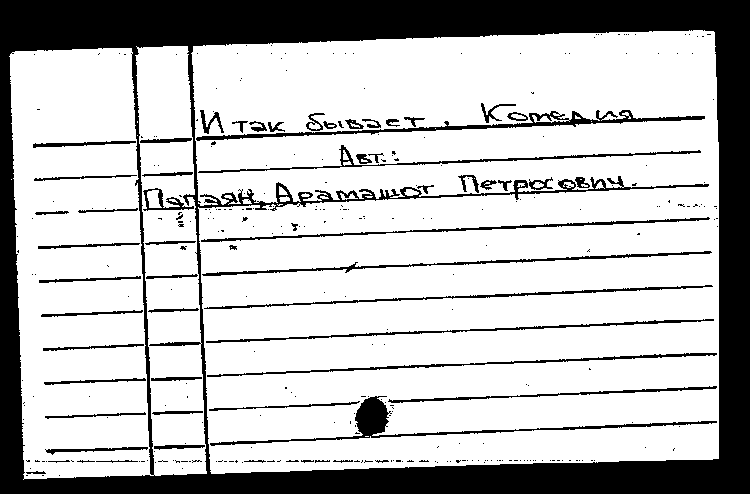 И так бывает. Комедия
Авт.:
Папаян, Арамашот Петросович.